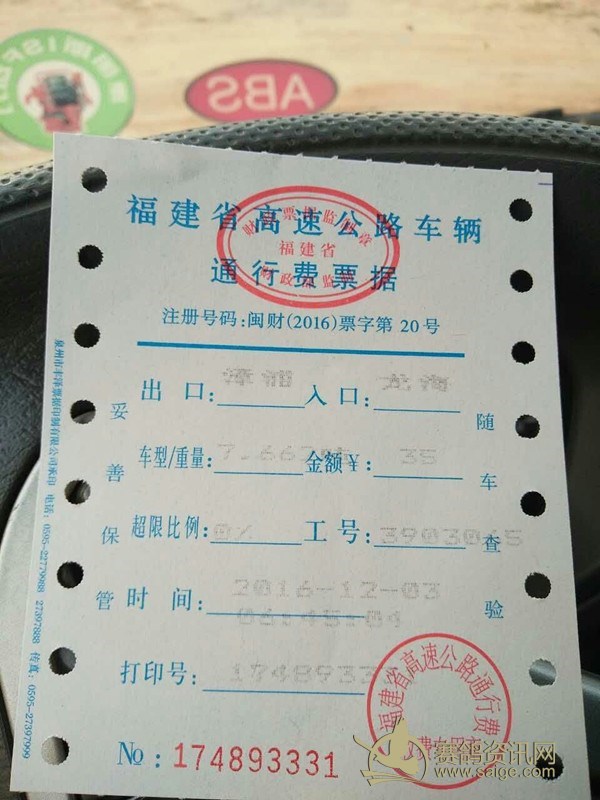 ABS
福建省高速公路车辆
通行费票据
福建省
注册号码:闽财(2016)票字第20号
出口:漳浦 入口:
车型/重量: 金额¥:35
超限比例:0% 工号:3903045
时间:2016-12-03
06:45:04
打印号:17489333
№:174893331
妥善保管
随车查验
泉州市丰泽票据印制有限公司承印 电话:0595-22779888 27397888 传真:0595-27397999
福建省高速公路通行费
赛鸽资讯网
www.saige.com